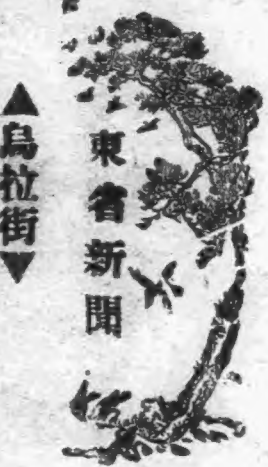 東省新聞
▲烏拉街▼